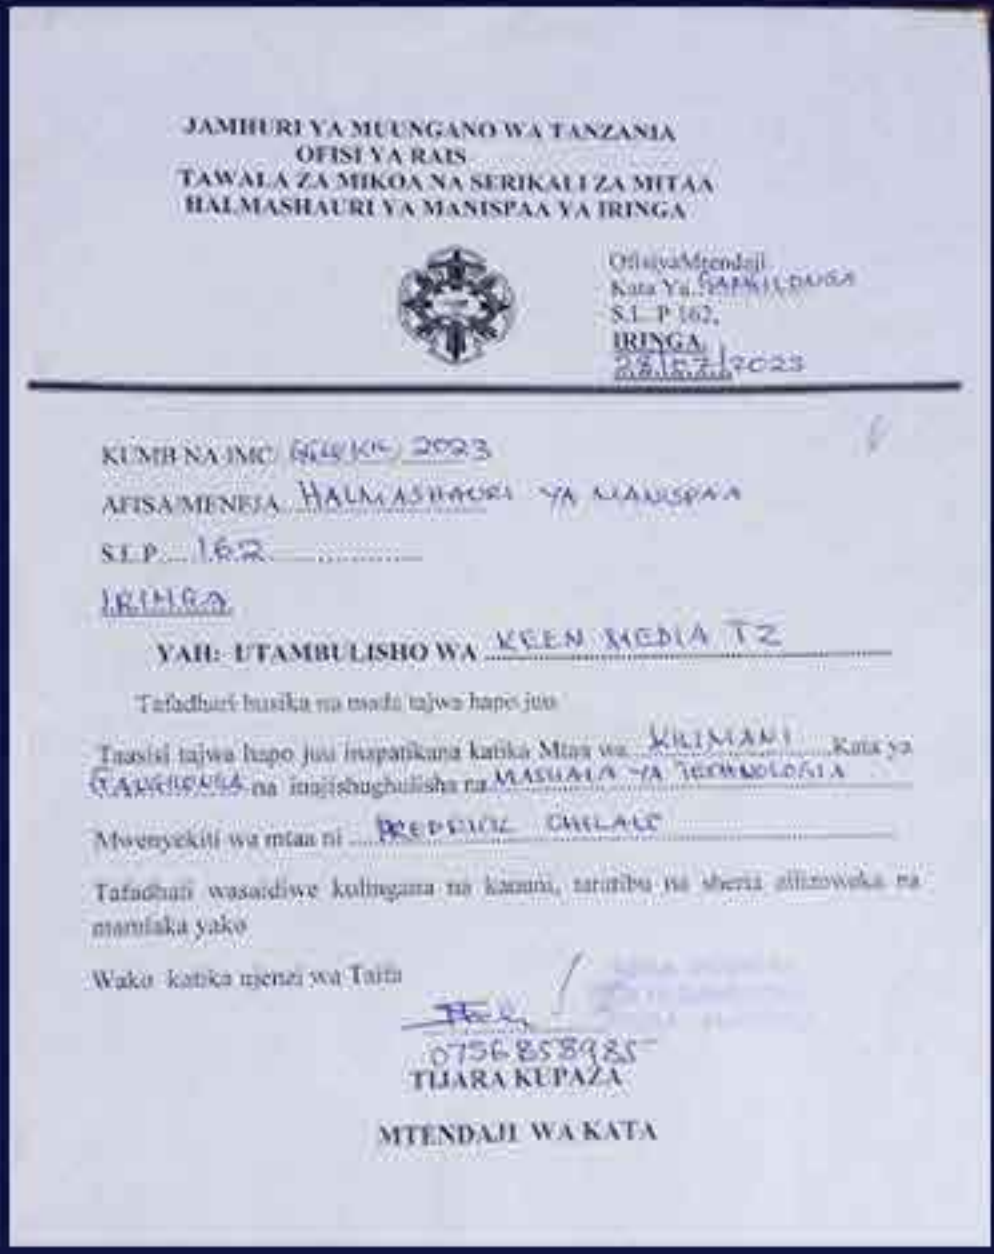 JAMHURI YA MUUNGANO WA TANZANIA
OFISI YA RAIS
TAWALA ZA MIKOA NA SERIKALI ZA MITAA
HALMASHAURI YA MANISPAA YA IRINGA
OfisiyaMtendaji
Kata Ya GANGILONGA
S.L. P 162,
IRINGA.
28/07/2023
KUMB NA IMC 2023
AFISA/MENEJA HALMASHAURI YA MANISPAA
S.L.P..... 162
IRINGA
YAH: UTAMBULISHO WA KEEN MEDIA TZ
Tafadhari husika na mada tajwa hapo juu
Taasisi tajwa hapo juu inapatikana katika Mtaa wa KILIMANI Kata ya
GANGILONGA na inajishughulisha na MASUALA YA TECHNOLOGIA
Mwenyekiti wa mtaa ni FREDRICK
Tafadhali wasaidiwe kulingana na kanuni, taratibu na sheria zilizowekwa na
mamlaka yako
Wako katika ujenzi wa Taifa
0756858985
TIJARA KUPAZA
MTENDAJI WA KATA